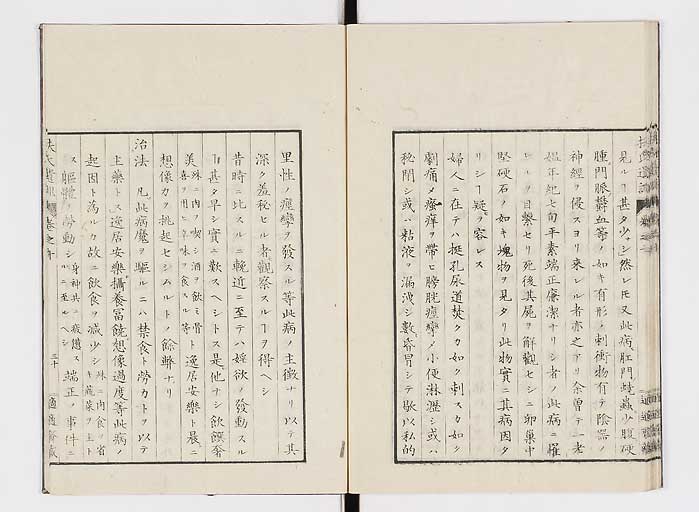 見ルヿ甚タ少シ然レ𪜈又此病肛門蟯蟲少腹硬
腫門脈欝血等ノ如キ有形ノ刺衝物有テ陰器ノ
神經ヲ侵スヨリ来レル者亦之アリ余曾テ一老
媼年紀七旬平素端正廉潔ナリシ者ノ此病ニ罹
レルヲ目擊セリ死後其屍ヲ解觀セシニ卵巢中
堅硬石ノ如キ塊物ヲ見タリ此物實ニ其病因タ
リシヿ疑ヲ容レス
婦人ニ在テハ挺孔尿道焚クカ如ク刺スカ如ク
劇痛メ瘙痒ヲ帯ヒ膀胱痙攣メ小便淋瀝シ或ハ
秘閉シ或ハ粘液ヲ漏洩シ數昏冒シテ敬以私的
里性ノ痙攣ヲ發スル等此病ノ主徴ナリ以テ其
深ク羞秘ヒル者ヲ觀察スルヿヲ得ヘシ
昔時ニ比スルニ輓近ニ至テハ婬欲ヲ發動スル
ヿ甚タ早シ實ニ歎スヘシトス是他ナシ飲饌奢
美殊ニ肉ヲ喫シ酒ヲ飲ミ骨喜ヲ用ヒ辛味ヲ食スル等ト逸居安樂ト晨ニ
想像カヲ挑起セシムルトノ餘弊ナリ
治法 凡此病魔ヲ驅ルニハ禁食ト勞力トヲ以テ
主藥トス逸居安樂攝養冨饒想像過度等此病ノ
起因ト為ルカ故ニ飲食ヲ減少シ殊ニ肉食ヲ省キ蔬菜ヲ主トス
軀體ヲ勞動シ身神共ニ疲憊スルニ至ルヘシ端正ノ事件ニ
扶氏遺訓 卷之十 三十 適適齋藏